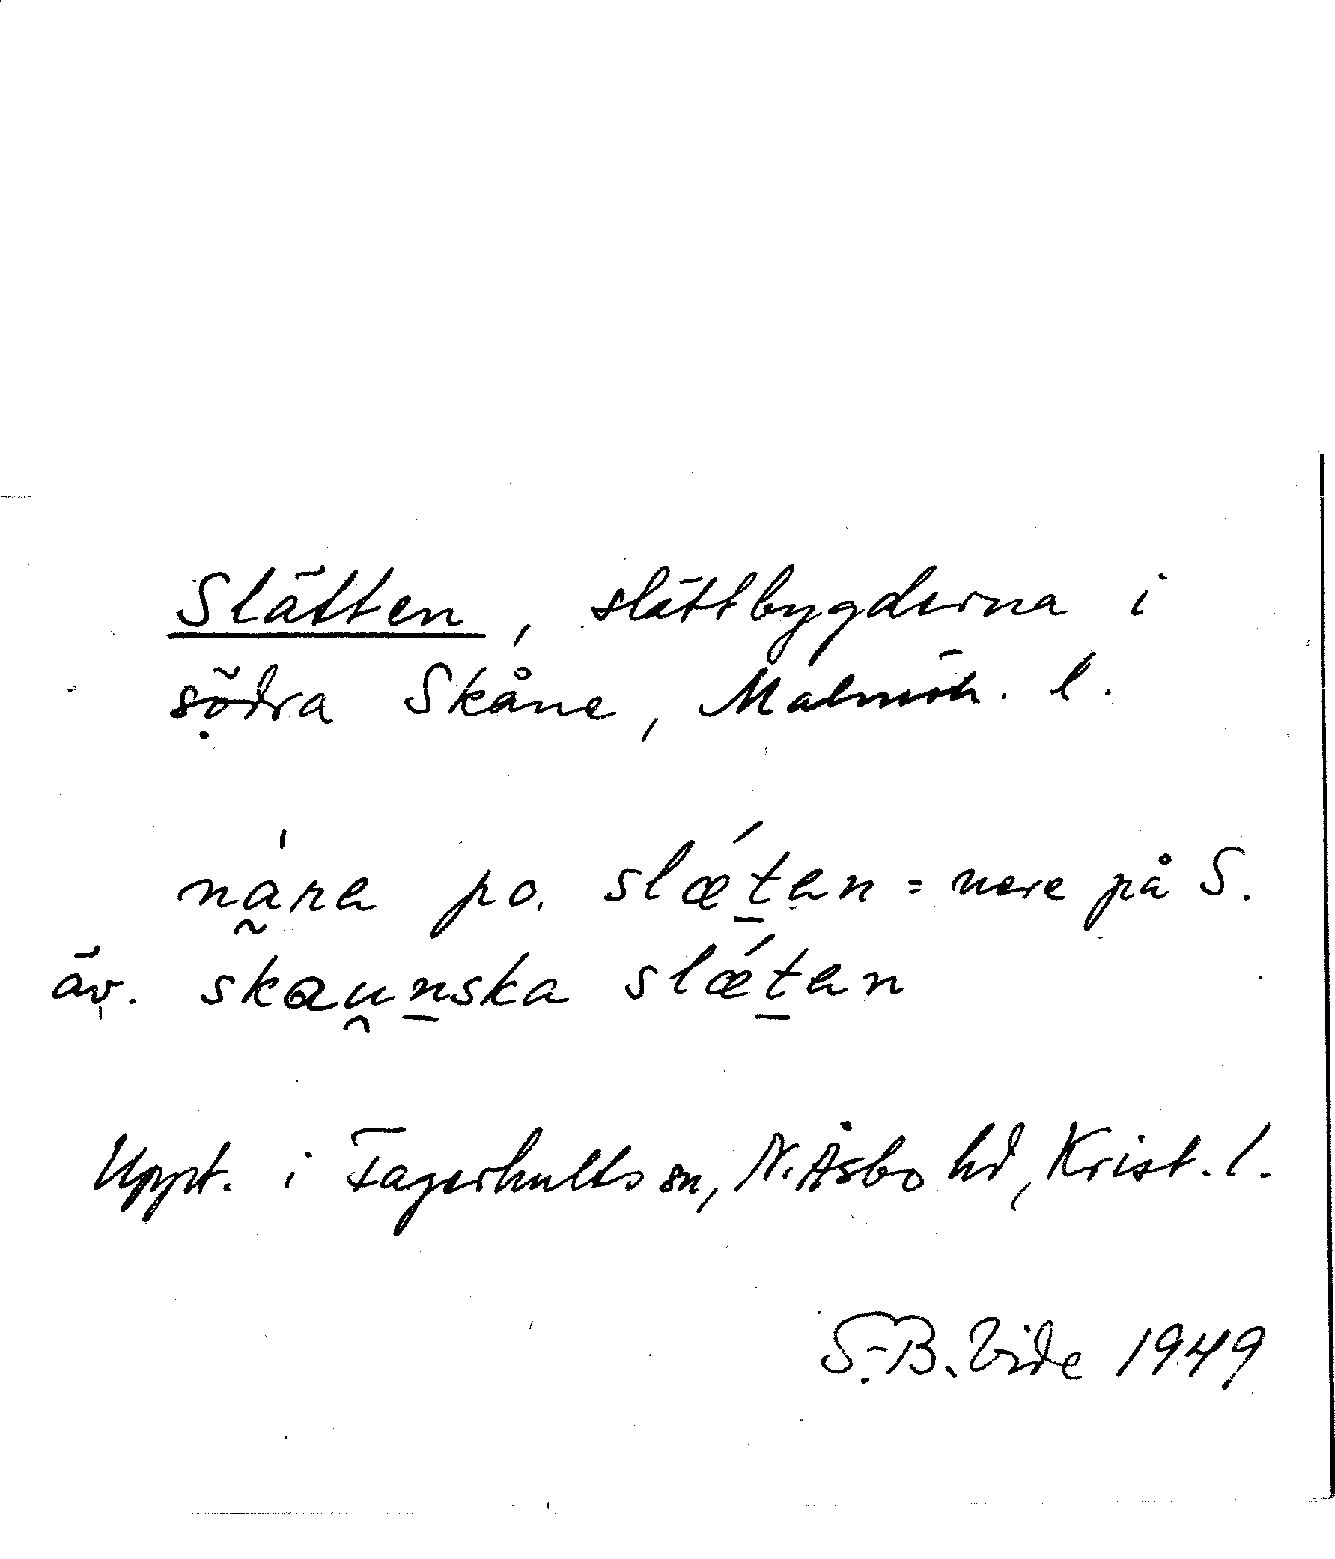 Slätten, slättbygderna i
södra Skåne, Malmöh. l.
nara po. slǽtan = nere på S.
äv. skaunska slǽtan
Uppt. i Fagerhults sn, N. Åsbo hd, Krist. l.
S.-B. Vide 1949